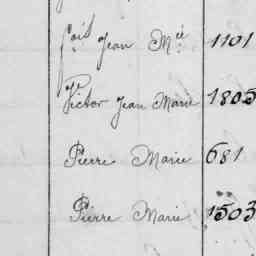 fois Jean Mie 1101
Victor Jean Marie 1805
Pierre Marie 681
Pierre Marie 1503